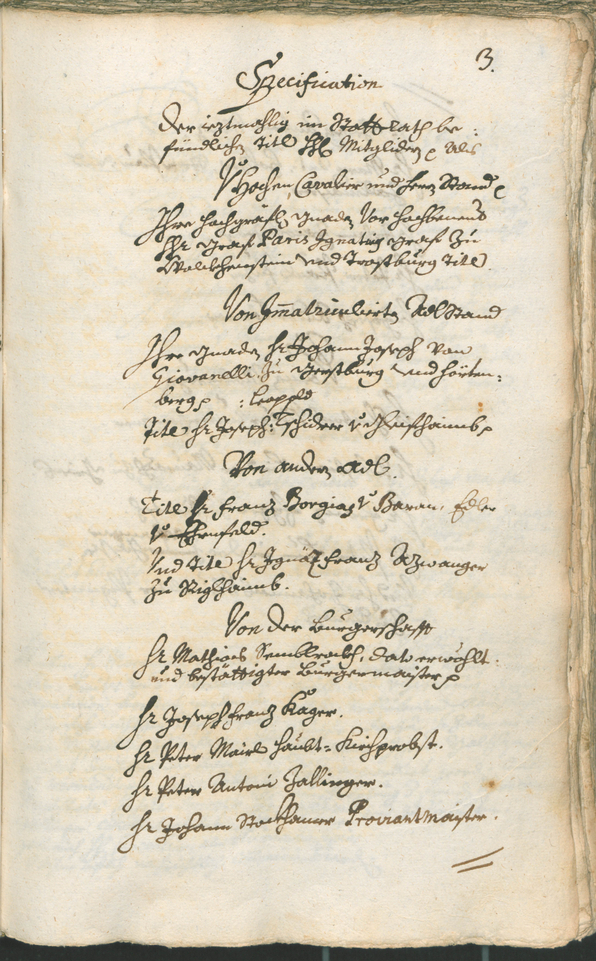 3.
Specification
Der ieztmahlig im Statt Rath be:
fündlichen Titl HH. Mitglider als
V. Hochen Cavalier und Herrn Stand
Ihro Hochgräfl. Gnaden Vor Hochbenent
Hr. Graf Paris Ignati Graf zu
Wolckhenstein und Trostburg Titl.
Von Immatriculierten Adl Stand
Ihro Gnaden Hr. Johann Joseph von
Giovanelli zu Gerstburg und Hörten:
berg : Leopold
Titl Hr. Joseph Tschiderer v.
Von andern Adl.
Titl Hr. Franz Borgias v. Baran, Edler
v. Ehrnfeld.
Und Titl Hr. Ignatz Franz Azwanger
zu
Von der Burgerschafft
Hr. Mathias dato erwöhlt:
und bestättigter Burgermaister
Hr. Joseph Franz Kager.
Hr. Peter Mairl Haubt-Kirchprobst.
Hr. Peter Antoni Zallinger.
Hr. Johann Stockhamer Proviantmaister.